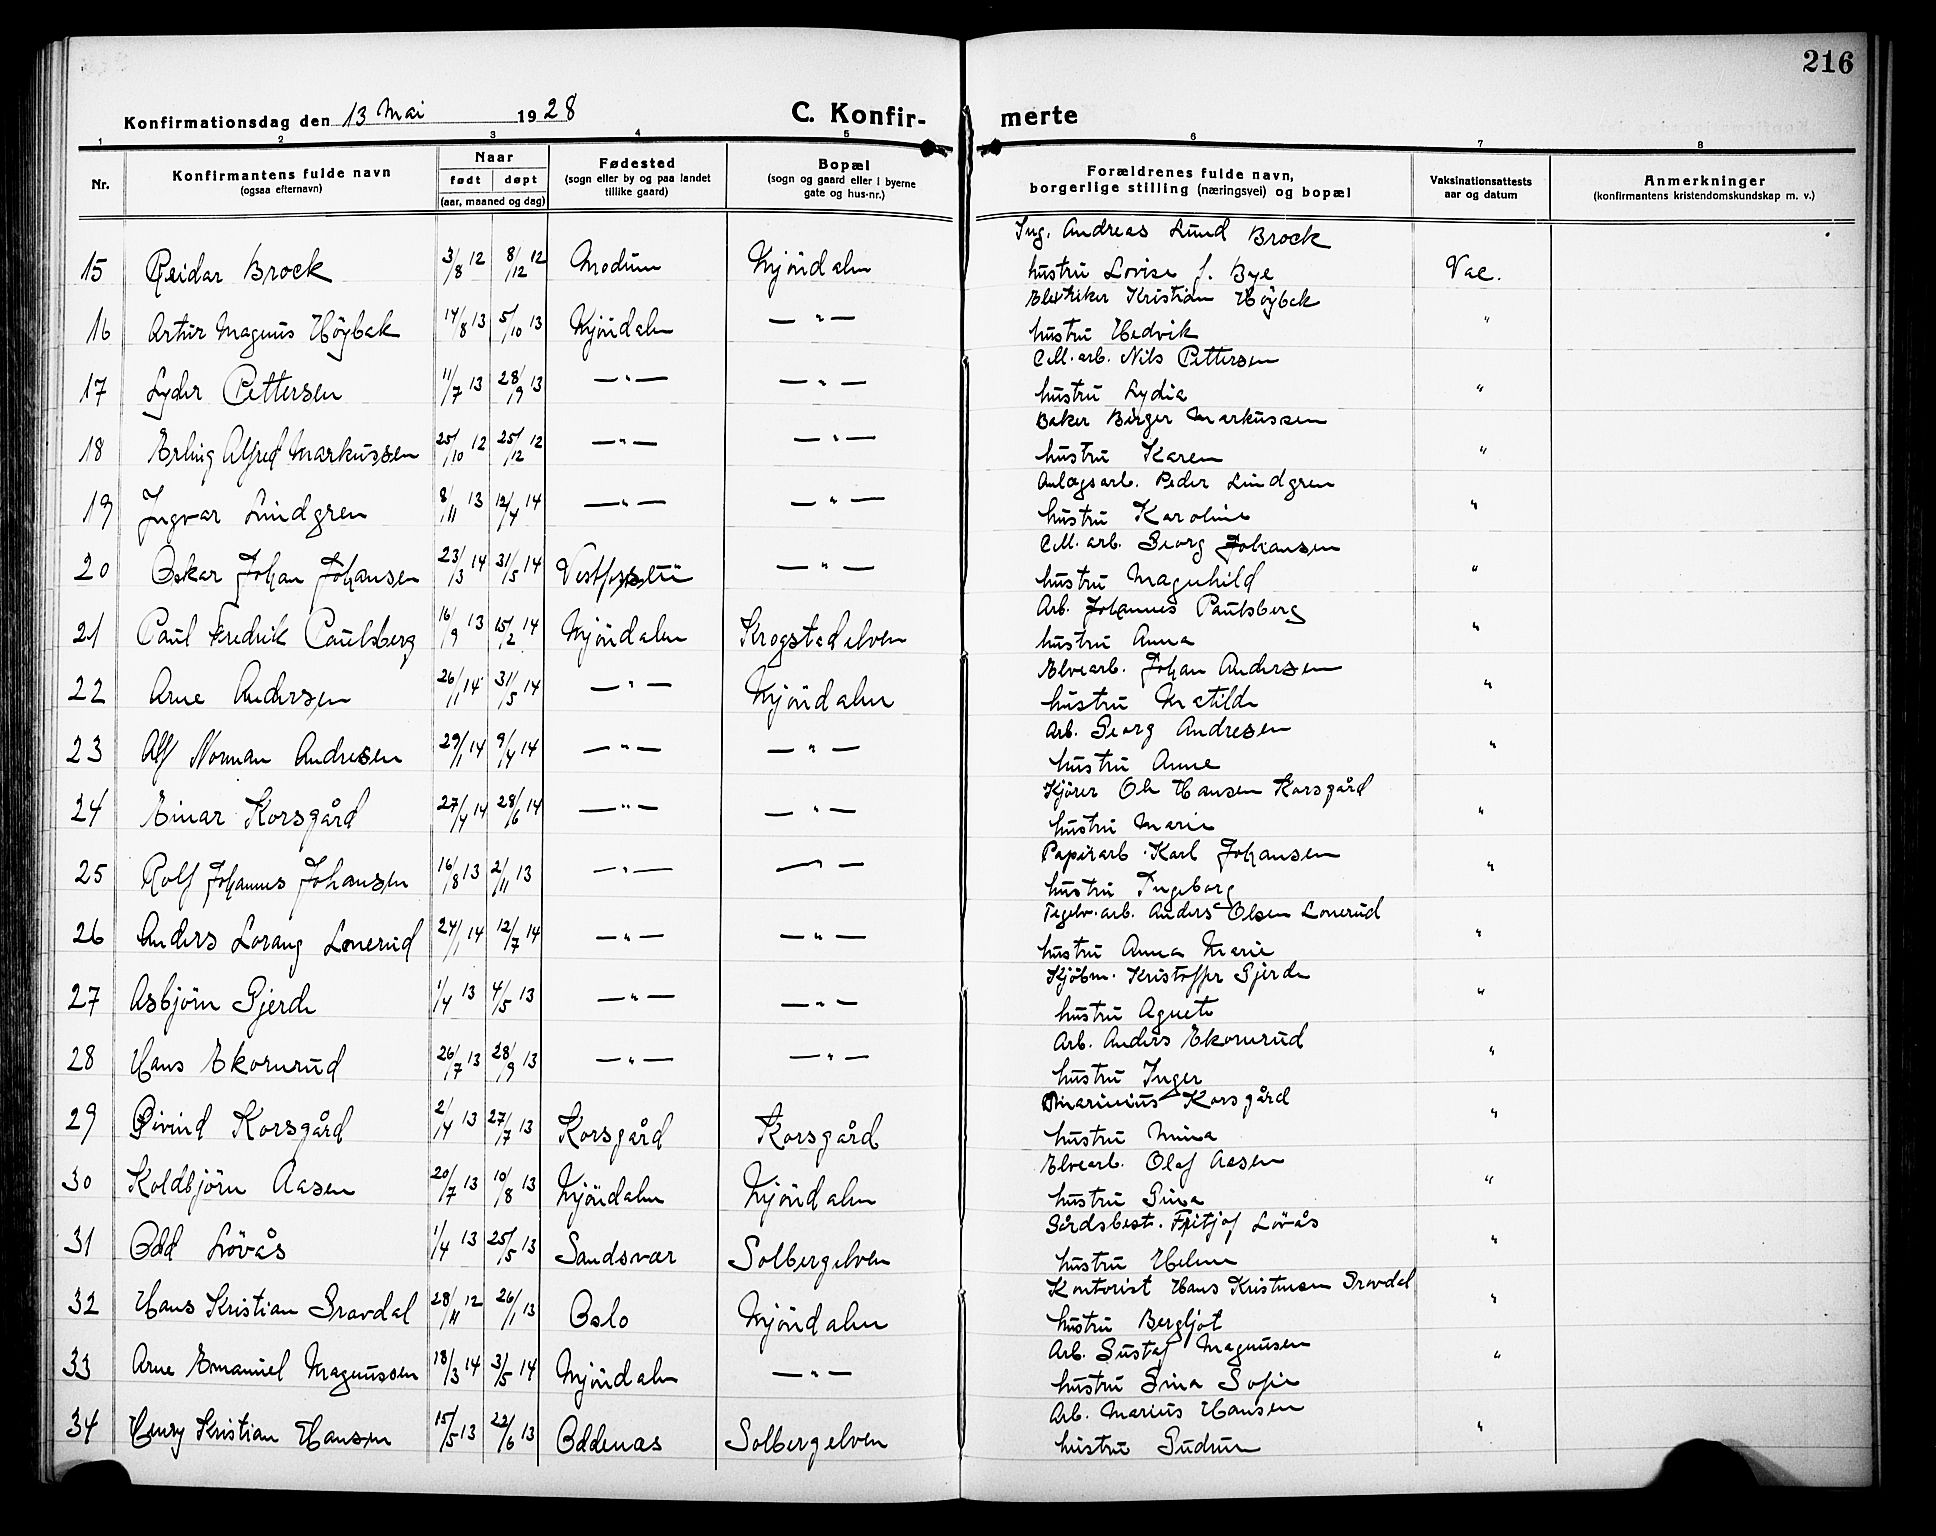 216
Konfirmationsdag den 13 Mai 1928 C. Konfir- merte
1 2 3 4 5 6 7 8
Nr. Konfirmantens fulde navn (ogsaa efternavn) Naar født døpt (aar, maaned og dag) Fødested (sogn eller by og paa landet tillike gaard) Bopæl (sogn og gaard eller i byerne gate og hus-nr.) Forældrenes fulde navn, borgerlige stilling (næringsvei) og bopæl Vaksinationsattests aar og datum Anmerkninger (konfirmantens kristendomskundskap m. v.)
Ing. Andreas Lund Brock
15 Reidar Brock 3/8 12 8/12 12 Modum Mjöndalen hustru Lovise f. Bye Vac.
Elektriker Kristian Höybak
16 Artur Magnus Höybak 14/8 13 5/10 13 Mjöndalen — " — hustru Hedvik "
Cell. arb. Nils Pettersen
17 Lyder Pettersen 11/7 13 28/9 13 — " — — " — hustru Lydia "
Baker Birger Markussen
18 Erling Alfred Markussen 25/10 12 25/12 12 — " — — " — hustru Karen "
Anlegsarb. Peder Lindgren
19 Ingvar Lindgren 8/11 13 12/4 14 — " — — " — hustru Karoline "
Cell. arb. Georg Johansen
20 Oskar Johan Johansen 23/3 14 31/5 14 — " — hustru Magnhild "
Arb. Johannes Paulsberg
21 Paul Fredrik Paulsberg 16/9 13 15/2 14 Mjöndalen Krogstadelven hustru Anna "
Elvearb. Johan Andersen
22 Arne Andersen 26/11 14 31/5 14 — " — Mjöndalen hustru Matilde "
Arb. Georg Andresen
23 Alf Norman Andresen 29/1 14 9/4 14 — " — — " — hustru Anne "
Kjörer Ole Hansen Korsgård
24 Einar Korsgård 27/4 14 28/6 14 — " — — " — hustru Marie "
Papirarb. Karl Johansen
25 Rolf Johannes Johansen 16/8 13 2/11 13 — " — — " — hustru Ingeborg "
Tegelv. arb. Anders Olsen Lonerud
26 Anders Lorang Lonerud 24/1 14 12/7 14 — " — — " — hustru Anna Marie "
Kjöbm. Kristoffer Gjerde
27 Asbjörn Gjerde 1/4 13 4/5 13 — " — — " — hustru Agnete "
Arb. Anders Ekornrud
28 Hans Ekornrud 26/7 13 28/9 13 — " — — " — hustru Inger "
Marinius Korsgård
29 Øivind Korsgård 2/4 13 27/7 13 Korsgård Korsgård hustru Mina "
Elvearb. Olaf Aasen
30 Koldbjörn Aasen 20/7 13 10/8 13 Mjöndalen Mjöndalen hustru Gina "
Gårdsbest. Fritjof Lövås
31 Odd Lövås 1/4 13 25/5 13 Sandsvær Solbergelven hustru Helene "
Kontorist Hans Kristensen Gravdal
32 Hans Kristian Gravdal 28/11 12 26/1 13 Oslo Mjöndalen hustru Bergljot "
Arb. Gustaf Magnusen
33 Arne Emanuel Magnussen 18/3 14 31/5 14 Mjöndalen — " — hustru Gina Sofie "
Arb. Marius Hansen
34 Henry Kristian Hansen 15/5 13 22/6 13 Oddenæs Solbergelven hustru Gudrun "